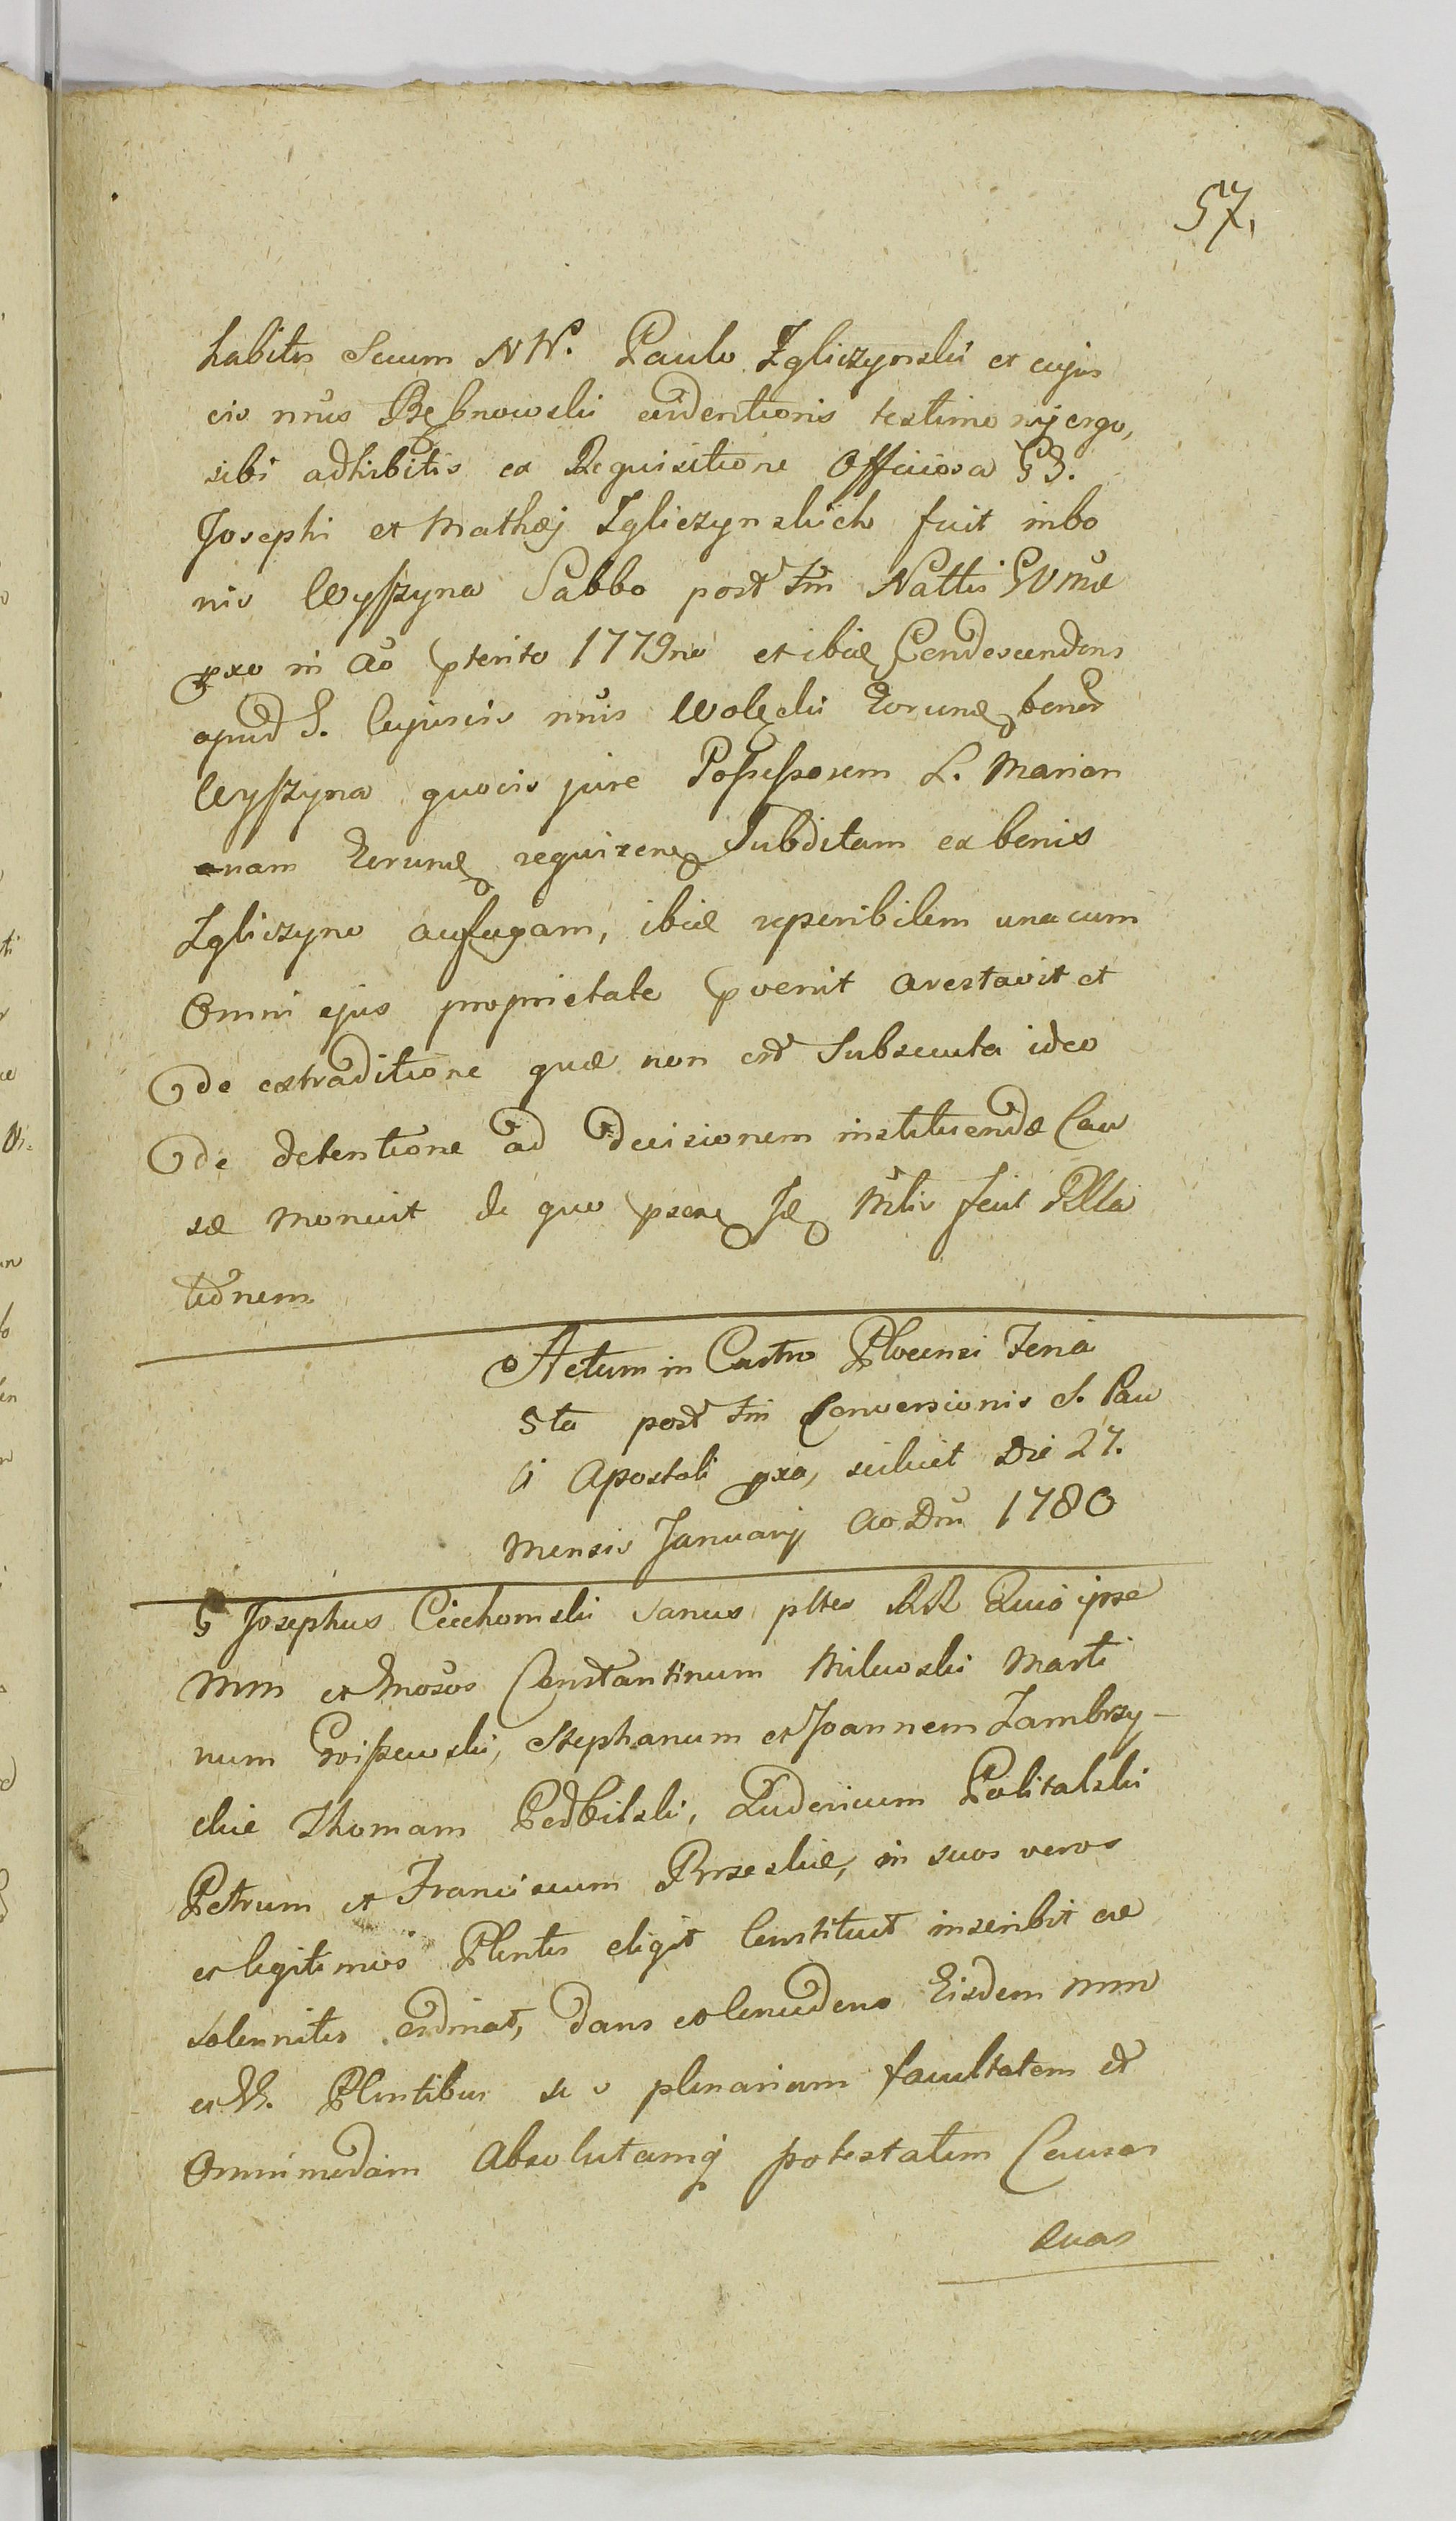 57.
habitis Secum NN. Paulo Zgliczynski et cujus
cis nnis Bębnowski evidentioris testimonij ergo,
sibi adhibitis ex Requisitione Officiosa GG.
Josephi et Mathæj Zgliczynskich fuit in bo
nis Wyszyna Sabbo post Fm Nattis GVMæ
pxo in Ao pterito 1779no et ibid Condescendens
apud G. Cujuscis nnis Wolęcki Eorund bonor
Wyszyna quocis jure Possessorem L. Marian
anam Eorund requiren Subditam ex benis
Zgliczyno aufugam, ibid reperibilem una cum
Omni ejus proprietate pvenit arestavit et
de extraditione quæ non est Subsecuta ideo
de detentione ad decisionem instituendæ Cau
sæ monuit de quo psen Id Mtlis fecit Rlla
tionem
Actum in Castro Plocensi Feria
5ta post Fm Conversionis S. Pau
li Apostoli pxa, scilicet Die 27.
Mensis Januarij Ao Dni 1780
G Josephus Ciechomski Sanus pltes RR Quis ipse
Mm et Gnosos Constantinum Milewski Marti
num Gwiszewski, Stephanum et Joannem Zambrzy-
ckie Thomam Podbilski, Ludovicum Politalski
Petrum et Franciscum Brzeskie, in suos veros
et legitimos Plentes eligit Constituit inscribit ac
solenniter ordinat, dans et Concedens Eisdem Mm
et GG. Plentibus suis plenariam facultatem et
Omnimodam Absolutamq potestatem Causas
quas